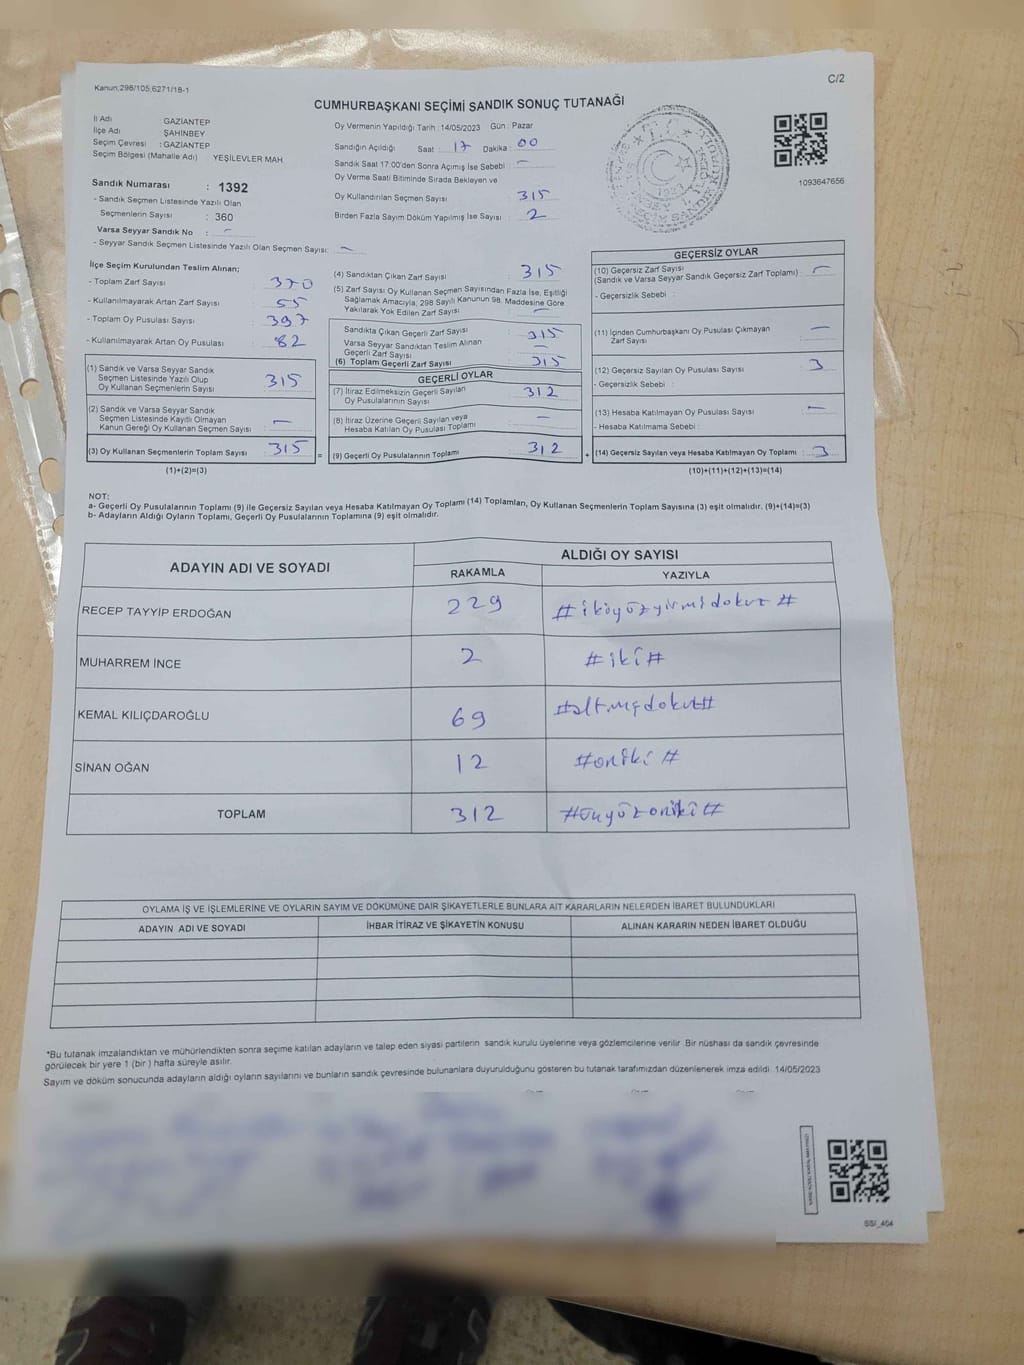 C/2
Kanun,298/105,6271/18-1
CUMHURBAŞKANI SEÇİMİ SANDIK SONUÇ TUTANAĞI
İl Adı GAZİANTEP
İlçe Adı ŞAHİNBEY
Seçim Çevresi : GAZİANTEP
Seçim Bölgesi (Mahalle Adı) YEŞİLEVLER MAH.
Sandık Numarası : 1392
- Sandık Seçmen Listesinde Yazılı Olan
Seçmenlerin Sayısı : 360
Varsa Seyyar Sandık No : -
- Seyyar Sandık Seçmen Listesinde Yazılı Olan Seçmen Sayısı: -
Oy Vermenin Yapıldığı Tarih :14/05/2023 Gün : Pazar
Sandığın Açıldığı Saat : 17 Dakika : 00
Sandık Saat 17:00'den Sonra Açımış İse Sebebi : -
Oy Verme Saati Bitiminde Sırada Bekleyen ve
Oy Kullandırılan Seçmen Sayısı : 315
Birden Fazla Sayım Döküm Yapılmış İse Sayısı : 2
T.C.
1093647656
İlçe Seçim Kurulundan Teslim Alınan;
- Toplam Zarf Sayısı : 370
- Kullanılmayarak Artan Zarf Sayısı : 55
- Toplam Oy Pusulası Sayısı : 397
- Kullanılmayarak Artan Oy Pusulası : 82
(1) Sandık ve Varsa Seyyar Sandık
Seçmen Listesinde Yazılı Olup
Oy Kullanan Seçmenlerin Sayısı : 315
(2) Sandık ve Varsa Seyyar Sandık
Seçmen Listesinde Kayıtlı Olmayan
Kanun Gereği Oy Kullanan Seçmen Sayısı : -
(3) Oy Kullanan Seçmenlerin Toplam Sayısı : 315
(1)+(2)=(3)
(4) Sandıktan Çıkan Zarf Sayısı : 315
(5) Zarf Sayısı Oy Kullanan Seçmen Sayısından Fazla İse, Eşitliği
Sağlamak Amacıyla; 298 Sayılı Kanunun 98. Maddesine Göre
Yakılarak Yok Edilen Zarf Sayısı : -
Sandıkta Çıkan Geçerli Zarf Sayısı : 315
Varsa Seyyar Sandıktan Teslim Alınan
Geçerli Zarf Sayısı : -
(6) Toplam Geçerli Zarf Sayısı : 315
GEÇERLİ OYLAR
(7) İtiraz Edilmeksizin Geçerli Sayılan
Oy Pusulalarının Sayısı : 312
(8) İtiraz Üzerine Geçerli Sayılan veya
Hesaba Katılan Oy Pusulası Toplamı : -
= (9) Geçerli Oy Pusulalarının Toplamı : 312 +
GEÇERSİZ OYLAR
(10) Geçersiz Zarf Sayısı
(Sandık ve Varsa Seyyar Sandık Geçersiz Zarf Toplamı) : -
- Geçersizlik Sebebi :
(11) İçinden Cumhurbaşkanı Oy Pusulası Çıkmayan
Zarf Sayısı : -
(12) Geçersiz Sayılan Oy Pusulası Sayısı : 3
- Geçersizlik Sebebi :
(13) Hesaba Katılmayan Oy Pusulası Sayısı : -
- Hesaba Katılmama Sebebi :
(14) Geçersiz Sayılan veya Hesaba Katılmayan Oy Toplamı : 3
(10)+(11)+(12)+(13)=(14)
NOT:
a- Geçerli Oy Pusulalarının Toplamı (9) ile Geçersiz Sayılan veya Hesaba Katılmayan Oy Toplamı (14) Toplamları, Oy Kullanan Seçmenlerin Toplam Sayısına (3) eşit olmalıdır. (9)+(14)=(3)
b- Adayların Aldığı Oyların Toplamı, Geçerli Oy Pusulalarının Toplamına (9) eşit olmalıdır.
ADAYIN ADI VE SOYADI ALDIĞI OY SAYISI
RAKAMLA YAZIYLA
RECEP TAYYİP ERDOĞAN 229 #ikiyüzyirmidokuz#
MUHARREM İNCE 2 #iki#
KEMAL KILIÇDAROĞLU 69 #altmışdokuz#
SİNAN OĞAN 12 #oniki#
TOPLAM 312 #üçyüzoniki#
OYLAMA İŞ VE İŞLEMLERİNE VE OYLARIN SAYIM VE DÖKÜMÜNE DAİR ŞİKAYETLERLE BUNLARA AİT KARARLARIN NELERDEN İBARET BULUNDUKLARI
ADAYIN ADI VE SOYADI İHBAR İTİRAZ VE ŞİKAYETİN KONUSU ALINAN KARARIN NEDEN İBARET OLDUĞU
*Bu tutanak imzalandıktan ve mühürlendikten sonra seçime katılan adayların ve talep eden siyasi partilerin sandık kurulu üyelerine veya gözlemcilerine verilir .Bir nüshası da sandık çevresinde
görülecek bir yere 1 (bir ) hafta süreyle asılır.
Sayım ve döküm sonucunda adayların aldığı oyların sayılarını ve bunların sandık çevresinde bulunanlara duyurulduğunu gösteren bu tutanak tarafımızdan düzenlenerek imza edildi. 14/05/2023
SSI_404